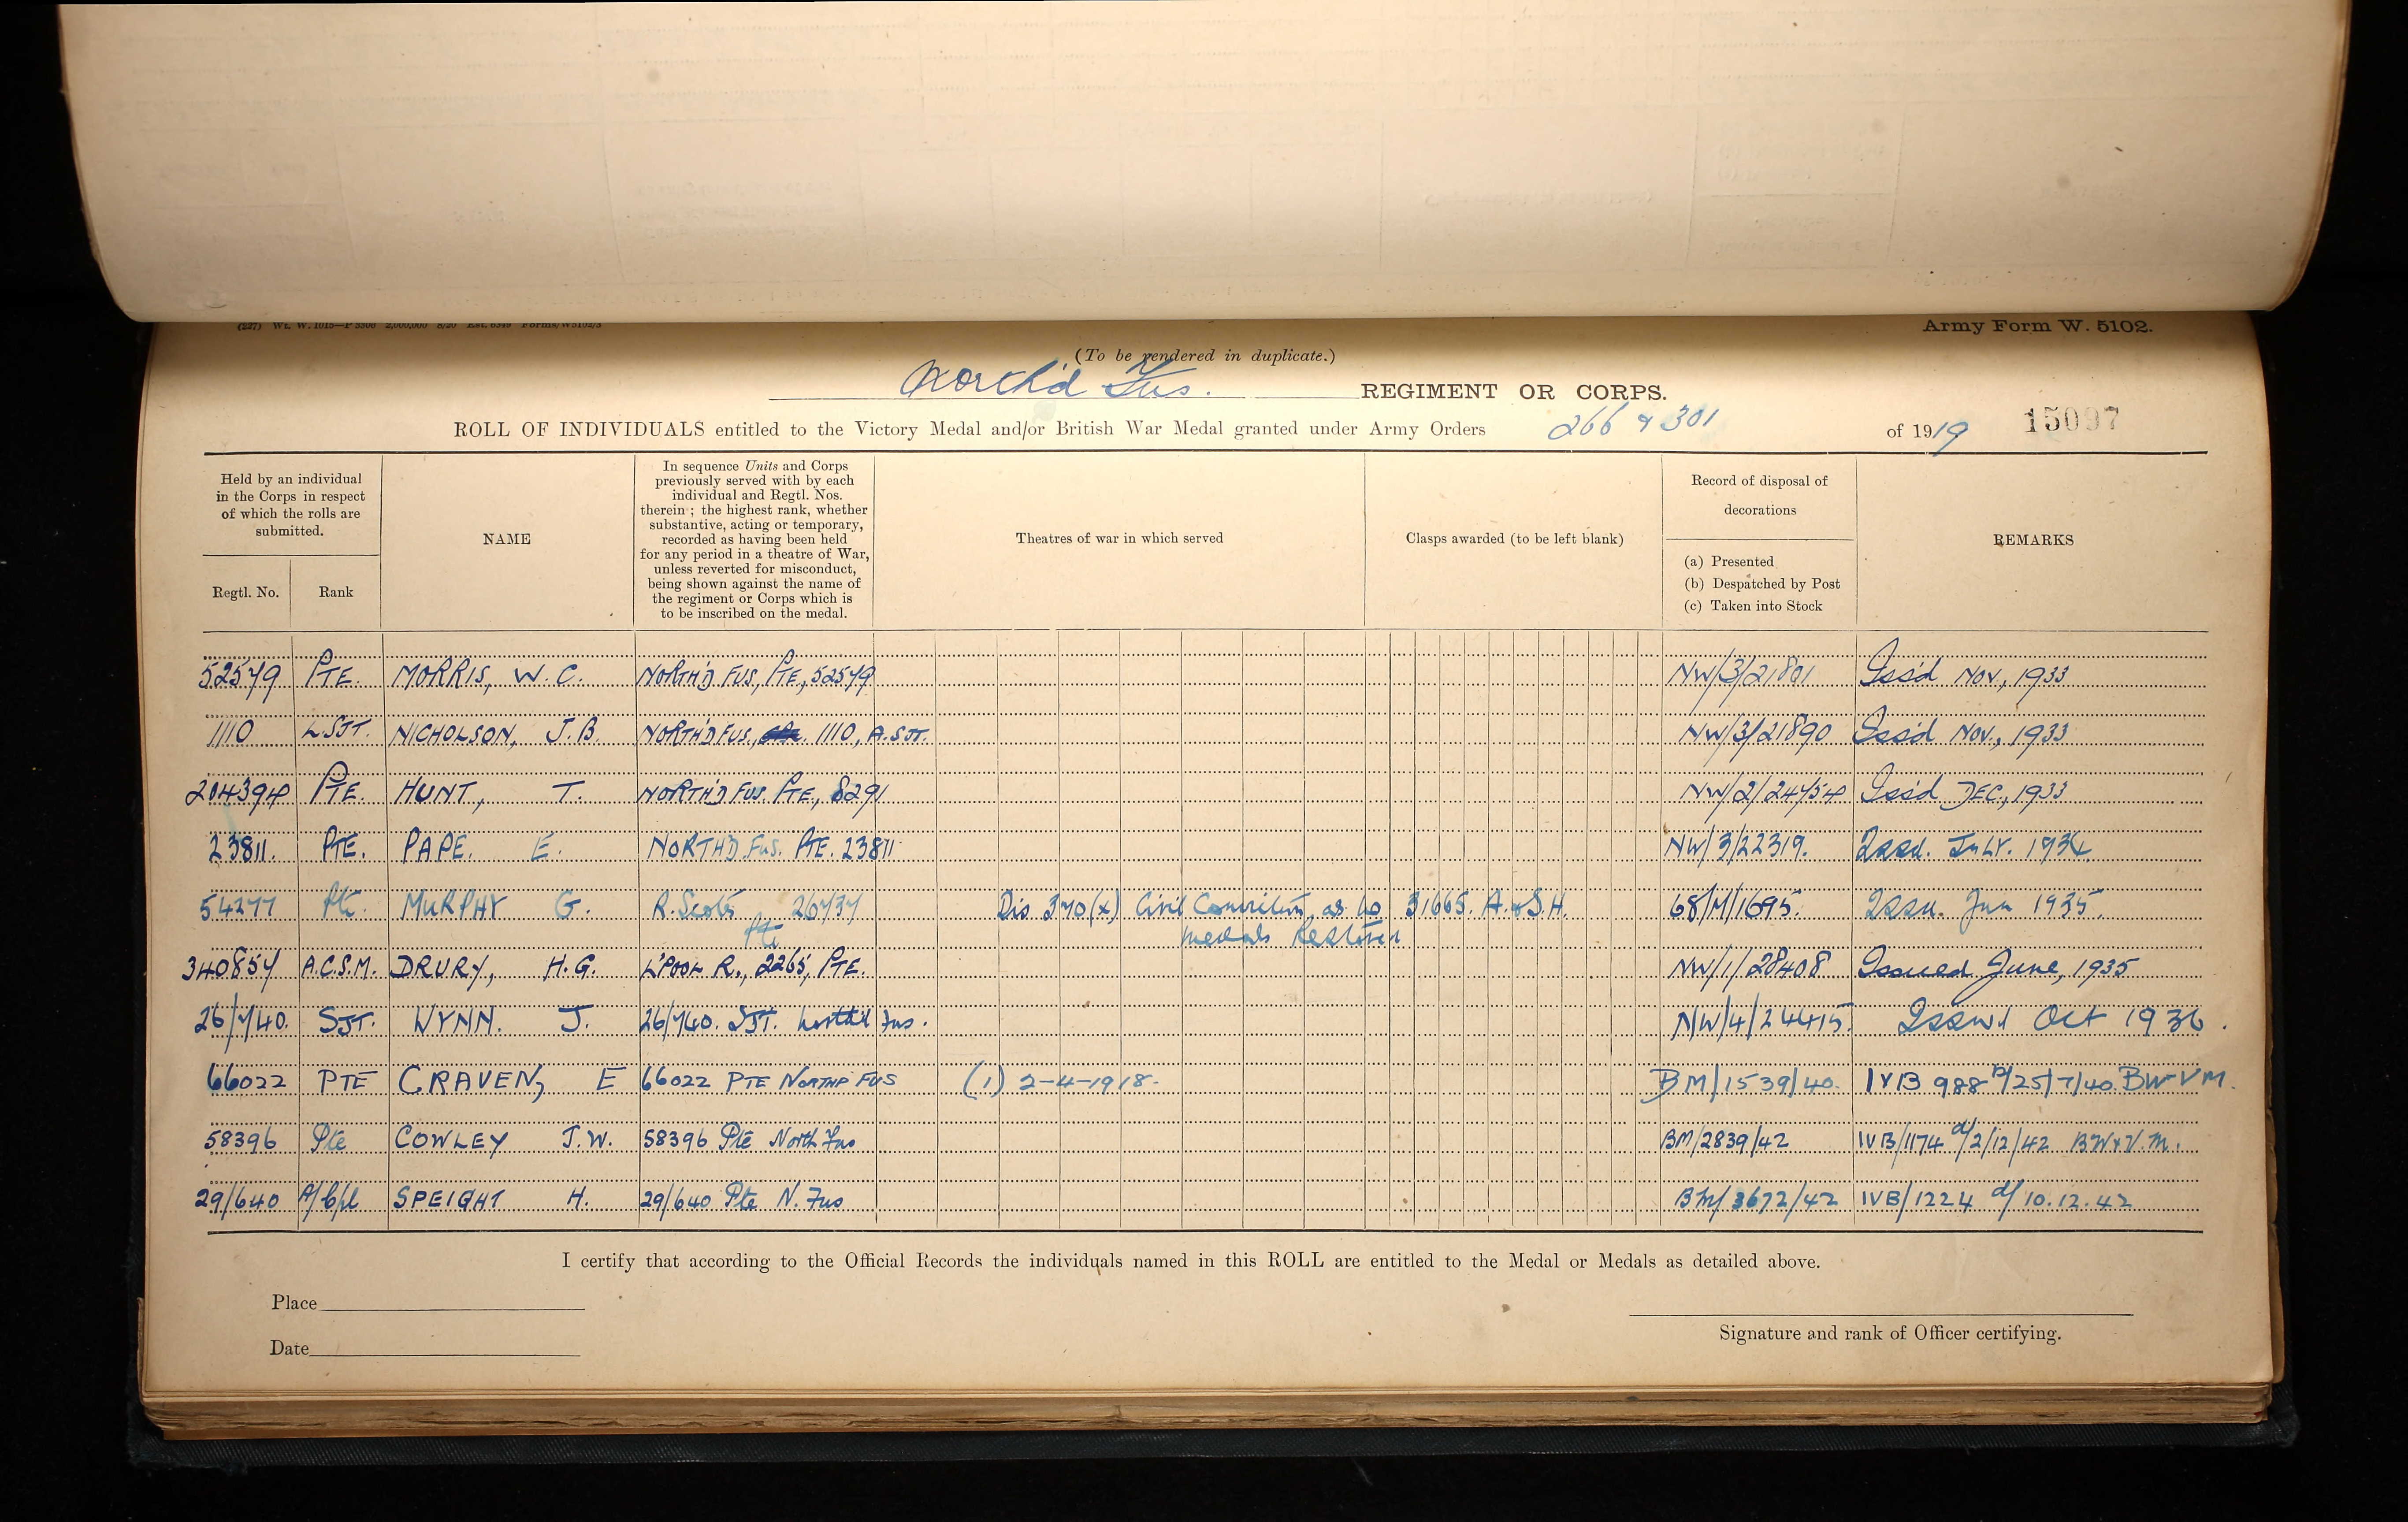 (227) Wt. W. 1015—P 5306 2,000,000 8/20 Est. 6349 Forms/W5102/3
Army Form W. 5102.
(To be rendered in duplicate.)
North'd Fus. REGIMENT OR CORPS.
ROLL OF INDIVIDUALS entitled to the Victory Medal and/or British War Medal granted under Army Orders 266 & 301 of 1919 15097
Held by an individual
in the Corps in respect
of which the rolls are
submitted.
Regtl. No.
Rank
NAME
In sequence Units and Corps
previously served with by each
individual and Regtl. Nos.
therein; the highest rank, whether
substantive, acting or temporary,
recorded as having been held
for any period in a theatre of War,
unless reverted for misconduct,
being shown against the name of
the regiment or Corps which is
to be inscribed on the medal.
Theatres of war in which served
Clasps awarded (to be left blank)
Record of disposal of
decorations
(a) Presented
(b) Despatched by Post
(c) Taken into Stock
REMARKS
52579 PTE. MORRIS, W. C. NORTH'D FUS, PTE, 52579 NW/3/21801 Iss'd NOV., 1933
1110 L.SJT. NICHOLSON, J.B. NORTH'D FUS, 1110, A.SJT. NW/3/21890 Iss'd NOV., 1933
204394 PTE. HUNT, T. NORTH'D FUS. PTE, 8291 NW/2/24754 Iss'd DEC., 1933
23811. PTE. PAPE. E. NORTH'D FUS. PTE. 23811 NW/3/22319. Issd. JULY. 1934
54277 Pte. MURPHY G. R. Scots 26737 Dis. 370(x) Civil Conviction, as to 31665. A. & S.H. 68/M/1695. Issd. Jun 1935.
Pte Medals Restored
340857 A.C.S.M. DRURY, H.G. L'POOL R., 2265, PTE. NW/1/28408 Issued June, 1935
26/740. SJT. WYNN. J. 26/740. SJT. North'd Fus. NW/4/24415. Issued Oct 1936.
66022 PTE CRAVEN, E 66022 PTE NORTHD FUS (1) 2-4-1918. BM/1539/40. IVB 988 D/25/7/40. BW VM.
58396 Pte COWLEY J.W. 58396 Pte North Fus BM/2839/42 IVB/1174 d/2/12/42 BW & V.M.
29/640 A/Cpl SPEIGHT H. 29/640 Pte N. Fus BM/3672/42 IVB/1224 d/10.12.42
I certify that according to the Official Records the individuals named in this ROLL are entitled to the Medal or Medals as detailed above.
Place
Date
Signature and rank of Officer certifying.